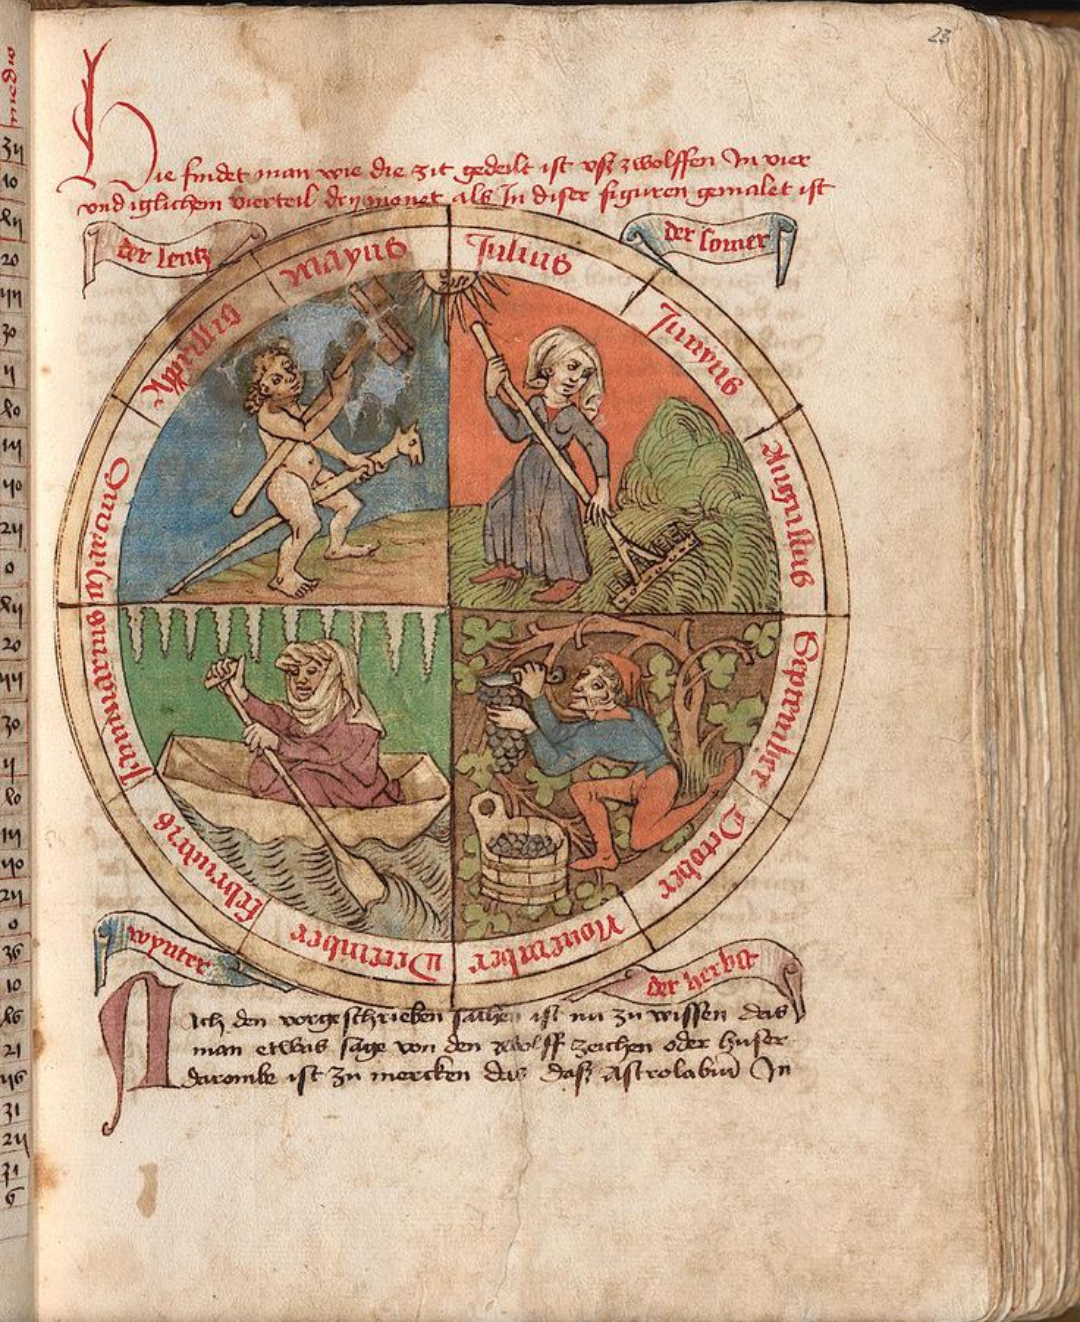 23
Hie findet man wie die zit gedeilt ist vsz zwolffen In vier
vnd iglichem vierteil dry monet als In diser figuren gemalet ist
der lentz
der somer
Mayus
Julius
Apprillis
Junyus
Marcius
Augustus
Jannuarius
September
februarius
October
December
Nouember
wynter
der herbst
Nach den vorgeschrieben sachen ist nu zu wissen das
man etwas sage von den zwolff zeichen oder huser
darombe ist zu mercken das dasz Astrolabiu In
medio
34
10
20
30
0
20
30
0
36
10
16
21
46
31
31
6